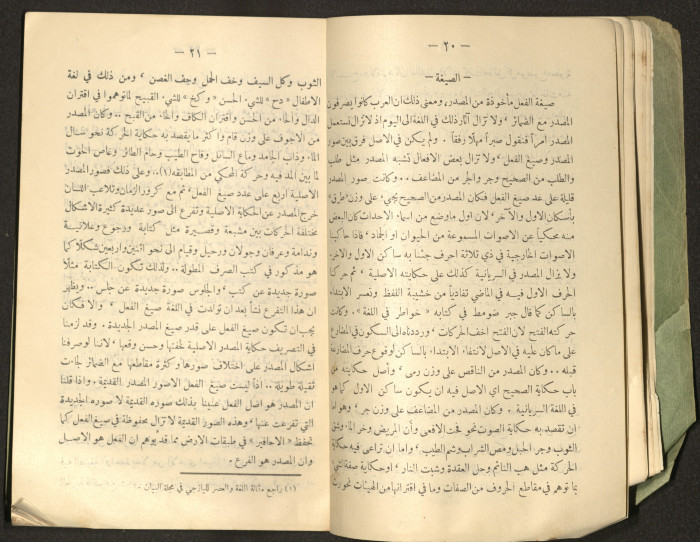 — ٢٠ —
— الصيغة —
صيغة الفعل مأخوذة من المصدر، ومعنى ذلك ان العرب كانوا يصرفون
المصدر مع الضمائر ولا تزال آثار ذلك في اللغة الى اليوم اذ لا تزال تستعمل
المصدر امراً فنقول صبراً مهلاً رفقاً . ولم يكن في الاصل فرق بين صور
المصدر وصيغ الفعل ، ولا تزال بعض الافعال تشبه المصدر مثل طلب
والطلب من الصحيح وجر والجر من المضاعف .. وكانت صور المصدر
قليلة على عدد صيغ الفعل فكان المصدر من الصحيح يجيء على وزن (طرق)
بأسكان الاول والآخر، لان اول ما وضع من اسماء الاحداث كان البعض
منه محكياً عن الاصوات المسموعة من الحيوان او الجماد، فاذا حاكينا
الاصوات الخارجية في ذي ثلاثة احرف جئنا به ساكن الاول والآخر.
ولا يزال المصدر في السريانية كذلك على حكايته الاصلية ، ثم حركنا
الحرف الاول فيه في الماضي تفادياً من خشيبة اللفظ وتعسر الابتداء
بالساكن كما قال جبر ضومط في كتابه « خواطر في اللغة ». وكانت
حركته الفتح لان الفتح اخف الحركات ، ورددناه الى السكون في المضارع
على ما كان عليه في الاصل لانتفاء الابتداء بالساكن لوقوع حرف المضارعة
قبله .. وكان المصدر من الناقص على وزن رمى ، وأصل حكايته من
باب حكاية الصحيح اي الاصل فيه ان يكون ساكن الاول كما هو
في اللغة السريانية . وكان المصدر من المضاعف على وزن جر ، وهو اما
ان تقصد به حكاية الصوت نحو فحت الافعى وأن المريض وخر الماء وشق
الثوب وجر الحبل ومص الشراب وشم الطيب ، واما ان تراعى فيه حكاية
الحركة مثل هب النائم وحل العقدة وشبت النار ، او حكاية صفة شيء
بما توهم في مقاطع الحروف من الصفات وما في اقترانها من الهيئات نحو رث
— ٢١ —
الثوب وكل السيف وخف الحمل وجف الغصن ، ومن ذلك في لغة
الاطفال « دح » للشيء الحسن « وكخ » للشيء القبيح لما توهموا في اقتران
الدال والحاء من الحسن واقتران الكاف والخاء من القبح .. وكان المصدر
من الاجوف على وزن قام واكثر ما يقصد به حكاية الحركة نحو سال
الماء، وذاب الجامد وماع السائل وفاح الطيب وحام الطائر وغاص الحوت
لما بين المد فيه وحركة المحكي من المطابقه (١).. وعلى ذلك فصور المصدر
الاصلية اربع على عدد صيغ الفعل، ثم مع كرور الازمان وتلاعب اللسان
خرج المصدر عن الحكاية الاصلية وتفرع الى صور عديدة كثيرة الاشكال
مختلفة الحركات بين مشبعة وقصيرة مثل كتابة ورجوع وعلانية
وندامة وعرفان وجولان ورحيل وقيام الى نحو اثنين واربعين شكلاً كما
هو مذكور في كتب الصرف المطولة .. ولذلك تكون الكتابة مثلاً
صورة جديدة عن كتب ، والجلوس صورة جديدة عن جلس .. ويظهر
ان هذا التفرع نشأ بعد ان تولدت في اللغة صيغ الفعل ، والا فكان
يجب ان تكون صيغ الفعل على قدر صيغ المصدر الجديدة . وقد لزمنا
في التصريف حكاية المصدر الاصلية لخفتها وحسن وقعها ، لاننا لو صرفنا
اشكال المصدر على اختلاف صورها وكثرة مقاطعها مع الضمائر لجاءت
ثقيلة طويلة .. اذاً ليست صيغ الفعل الا صور المصدر القديمة . واذا قلنا
ان المصدر هو اصل الفعل علينا بذلك صوره القديمة لا صوره الجديدة
التي تفرعت عنها ، وهذه الصور القديمة لا تزال محفوظة في صيغ الفعل كما
تحفظ « الاحافير » في طبقات الارض مما قد يوهم ان الفعل هو الاصل
وان المصدر هو الفرع .
(١) راجع مقالة اللغة والعصر لليازجي في مجلة البيان